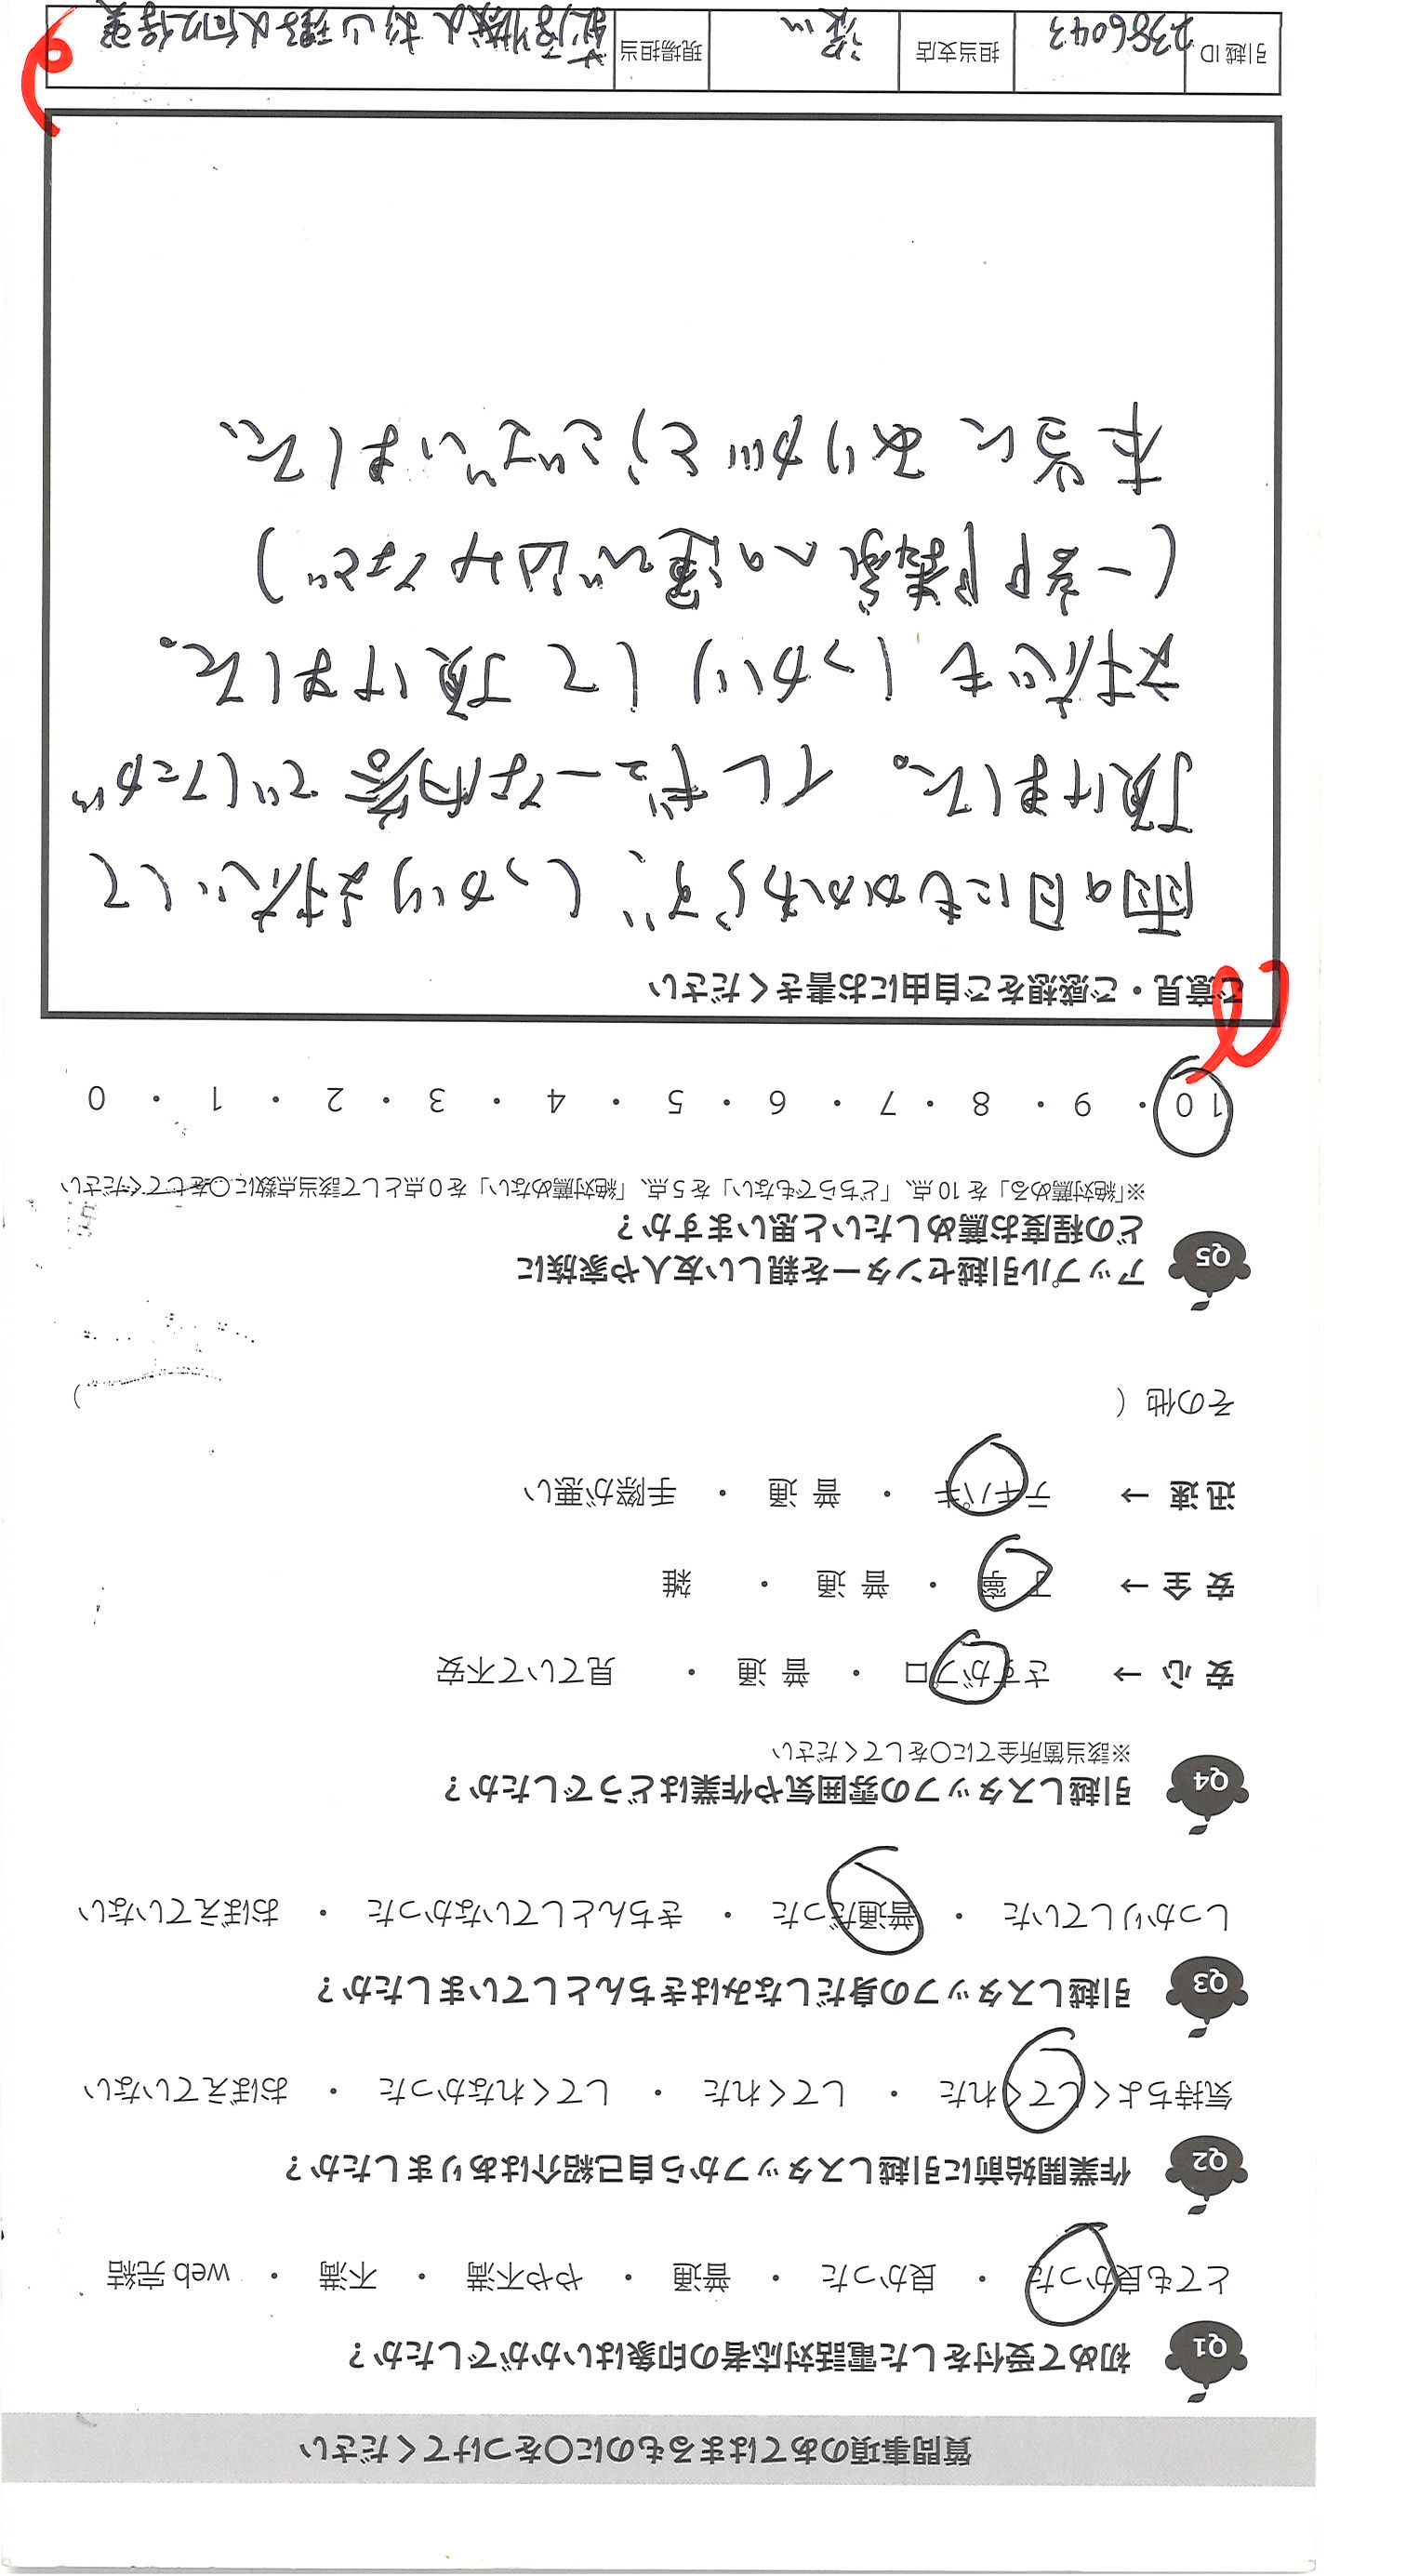 質問事項のあてはまるものに○をつけてください
Q1 初めて受付をした電話対応者の印象はいかがでしたか？
とても良かった ・ 良かった ・ 普通 ・ やや不満 ・ 不満 ・ web 完結
Q2 作業開始前に引越しスタッフから自己紹介はありましたか？
気持ちよくしてくれた ・ してくれた ・ してくれなかった ・ おぼえていない
Q3 引越しスタッフの身だしなみはきちんとしていましたか？
しっかりしていた ・ 普通だった ・ きちんとしていなかった ・ おぼえていない
Q4 引越しスタッフの雰囲気や作業はどうでしたか？
※該当箇所全てに○をしてください
安 心 → さすがプロ ・ 普 通 ・ 見ていて不安
安 全 → 丁 寧 ・ 普 通 ・ 雑
迅 速 → テキパキ ・ 普 通 ・ 手際が悪い
その他 ( )
Q5 アップル引越センターを親しい友人や家族に
どの程度お薦めしたいと思いますか？
※「絶対薦める」を 10 点、「どちらでもない」を 5 点、「絶対薦めない」を 0 点として該当点数に○をしてください
10 ・ 9 ・ 8 ・ 7 ・ 6 ・ 5 ・ 4 ・ 3 ・ 2 ・ 1 ・ 0
ご意見・ご感想をご自由にお書きください
雨の日にもかかわらず、しっかり対応して
頂けました。イレギュラーな内容でしたが
対応もしっかりして頂けました。
(一部隣家への運び込みなど)
本当にありがとうございました。
引越 ID 2386043 担当支店 現場担当